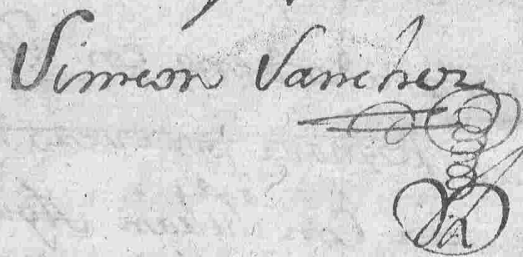 Simeon Sanchez